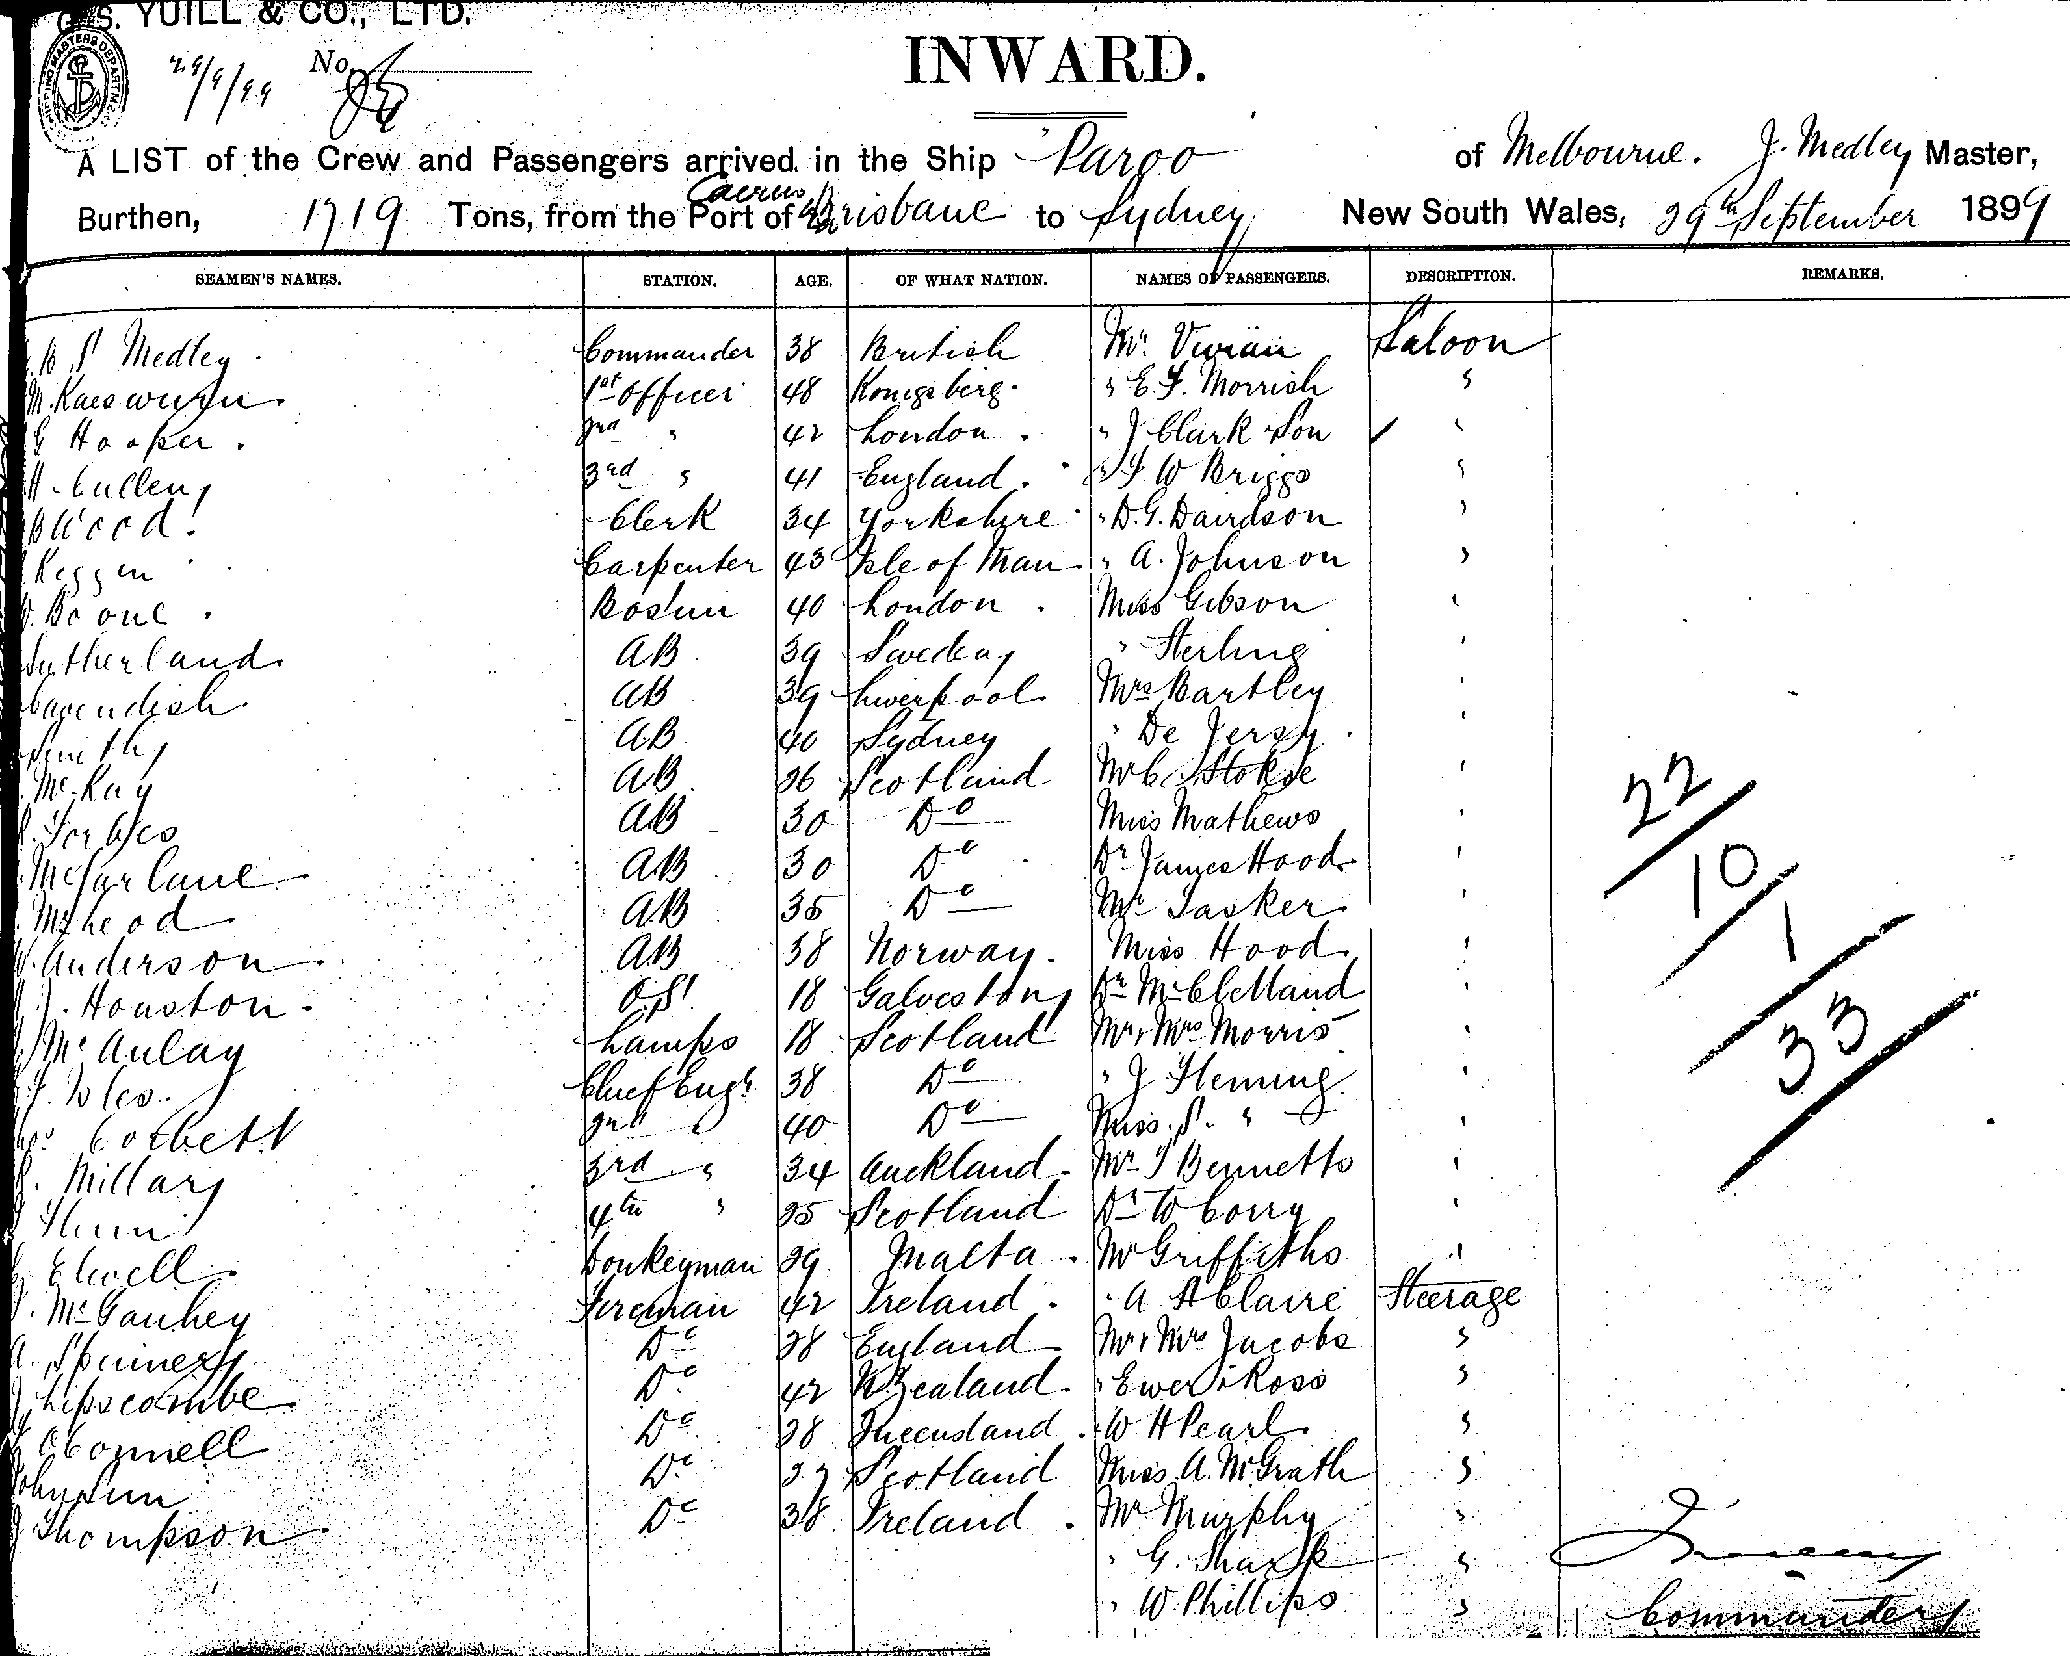 G. S. YUILL & CO., LTD.
29/9/99 No.
INWARD.
A LIST of the Crew and Passengers arrived in the Ship Paroo of Melbourne. J. Medley Master,
Burthen, 1719 Tons, from the Port of Cairns Brisbane to Sydney New South Wales, 29th September 1899
SEAMEN'S NAMES. STATION. AGE. OF WHAT NATION. NAMES OF PASSENGERS. DESCRIPTION. REMARKS.
Medley Commander 38 British Mr. Vivian Saloon
1st Officer 48 Konigsberg. " E. F. Morrish "
G Hooper. 2nd " 42 London. " J Clark Son "
H. Cullen 3rd " 41 England. " F W Briggs "
B Wood. Clerk 34 Yorkshire " D. G. Davidson "
Keggen Carpenter 43 Isle of Man " A. Johnson "
Boone. Bosun 40 London. Miss Gibson "
Sutherland AB 39 Sweden " Sterling "
Cavendish AB 39 Liverpool Mrs Bartley "
Smith AB 40 Sydney " De Jersy. "
McKay AB 26 Scotland Mr C Stokoe "
Forbes AB 30 Do Miss Mathews "
McFarlane AB 30 Do Dr James Hood "
McLeod AB 35 Do Mr Tasker "
Anderson AB 38 Norway. Miss Hood "
J. Houston. O.S. 18 Galveston Dr McClelland "
McAulay Lamps 18 Scotland Mr & Mrs Morris "
Chief Engr. 38 Do " J Fleming "
Corbett 2nd " 40 Do Miss. S. " "
Millar 3rd " 34 Auckland. Mr T Bennetts "
4th " 25 Scotland Dr W Corry "
Elwell Donkeyman 29 Malta. Mr Griffiths "
McGauhey Fireman 42 Ireland. " A St Claire Steerage
A. Do 28 England Mr & Mrs Jacobs "
J Lipscombe Do 42 N Zealand. " Ewer & Ross "
OConnell Do 28 Queensland. " W H Pearl "
Do 27 Scotland Miss A. McGrath "
J Thompson Do 38 Ireland. Mr Murphy "
" G. Sharp "
" W Phillips "
22
10
1
33
Commander